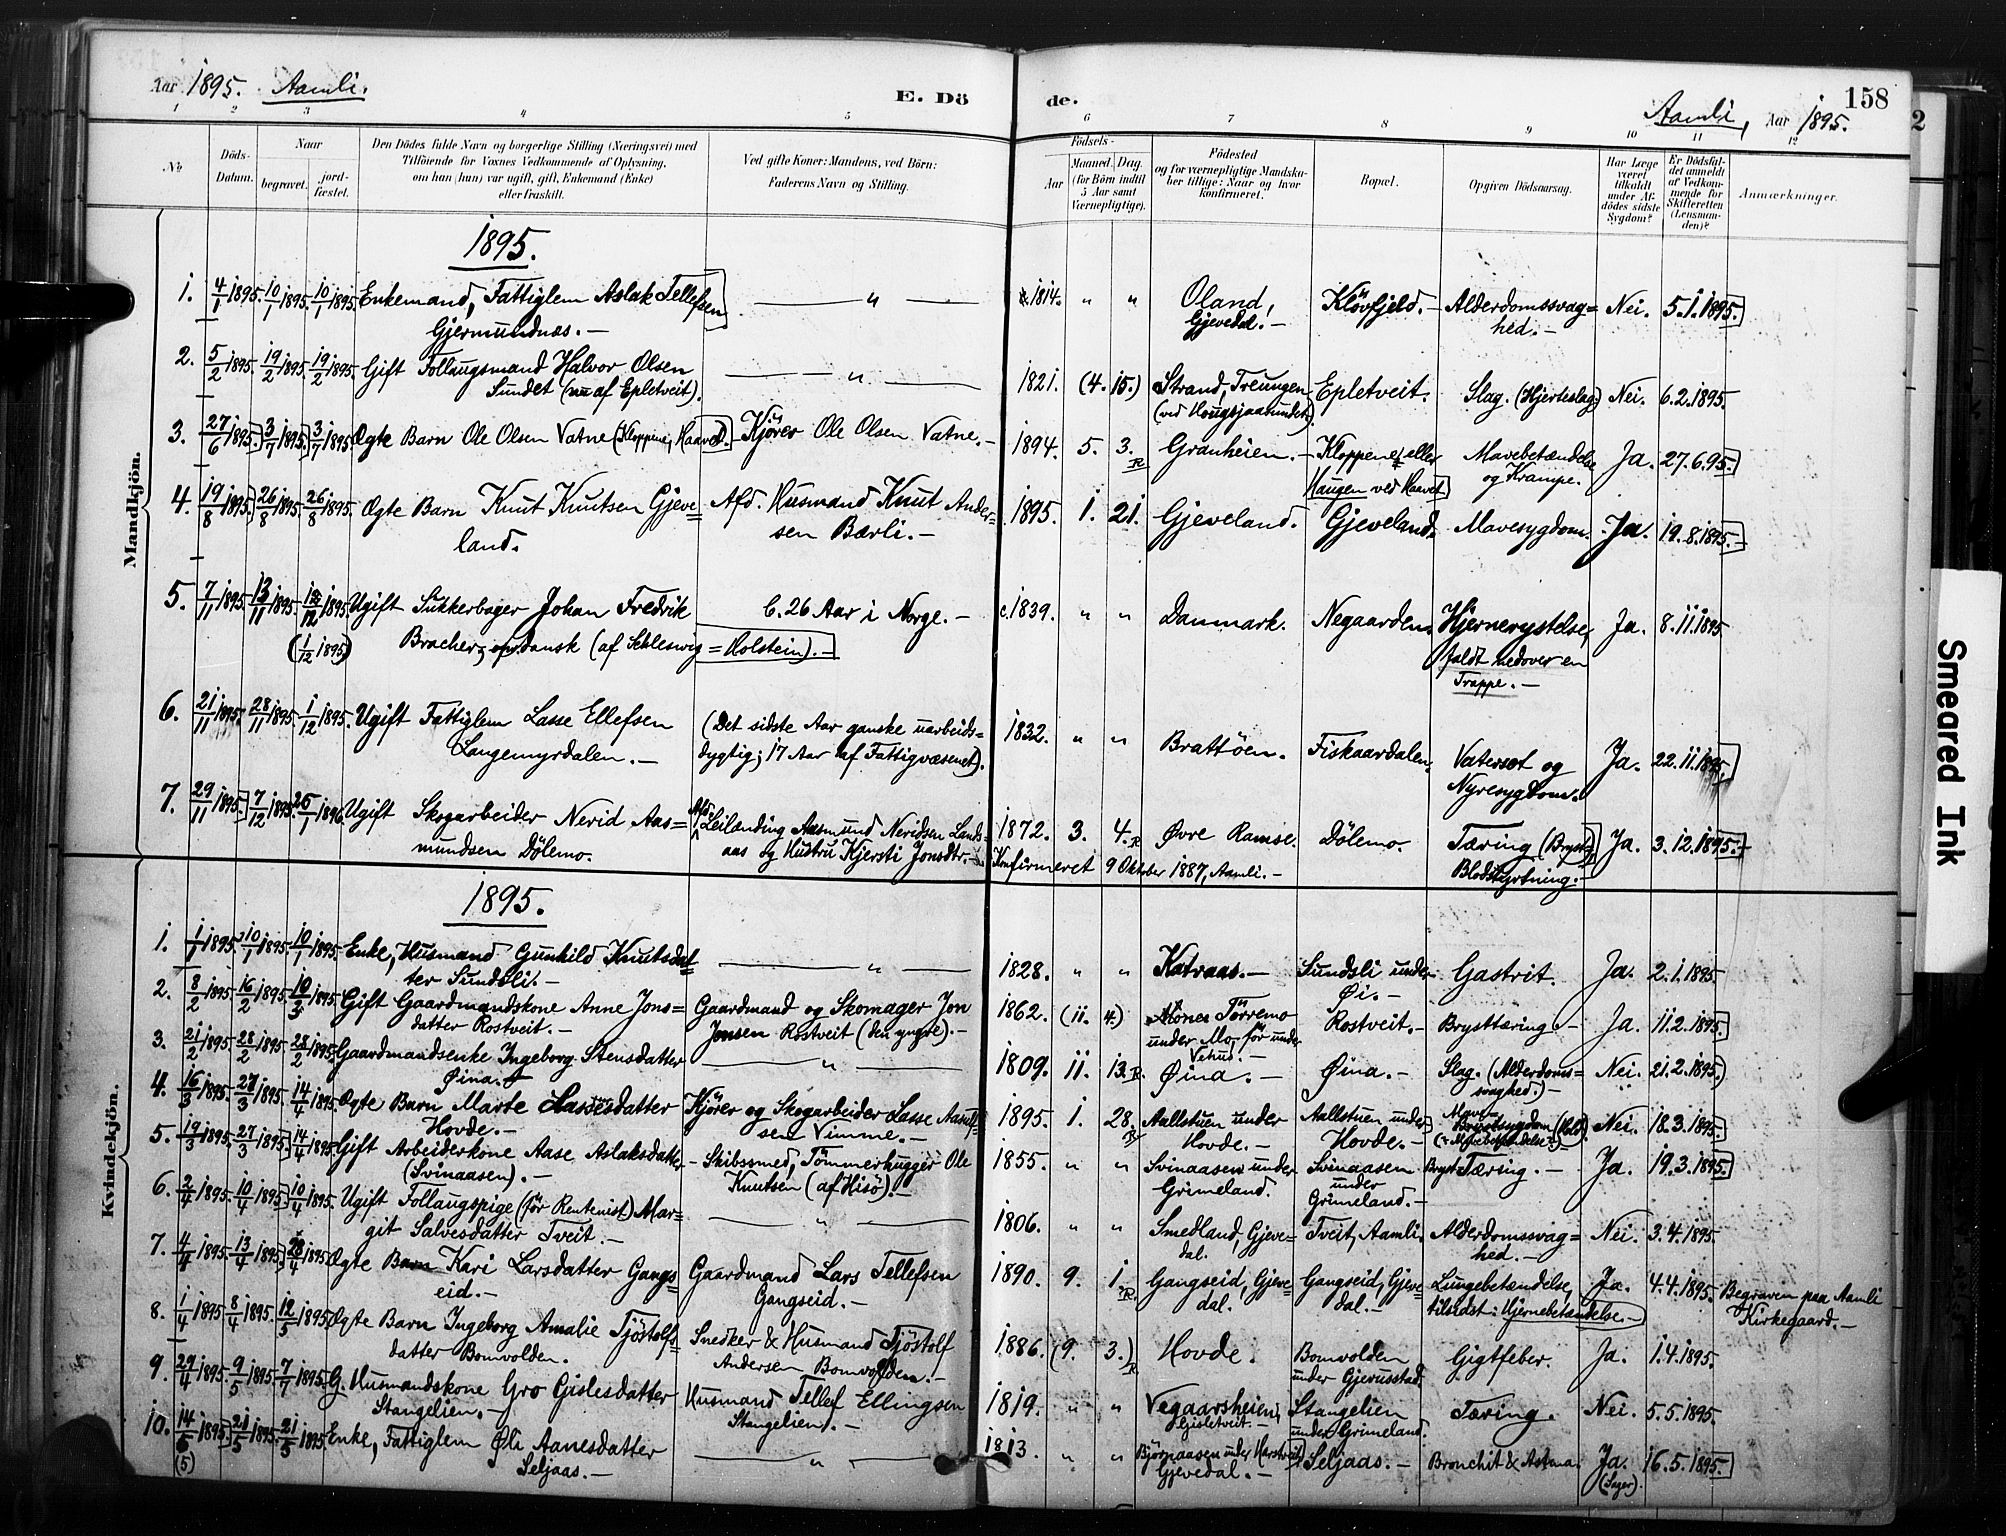 Aar 1895. Aamli.
E. Dö
de.
Aamli, Aar 1895.
158
2
1 2 3 4 5 6 7 8 9 10 11 12
No
Döds-
Datum.
Naar
begravet.
jord-
fæstet.
Den Dödes fulde Navn og borgerlige Stilling (Næringsvei) med
Tilföiende for Voxnes Vedkommende af Oplysning,
om han (hun) var ugift, gift, Enkemand (Enke)
eller fraskilt.
Ved gifte Koner: Mandens, ved Börn:
Faderens Navn og Stilling.
Födsels-
Aar
Maaned. Dag.
(for Börn indtil
5 Aar samt
Værnepligtige).
Födested
og for værnepligtige Mandska-
ber tillige: Naar og hvor
konfirmeret.
Bopæl.
Opgiven Dödsaarsag.
Har Læge
været
tilkaldt
under Af-
dödes sidste
Sygdom?
Er Dödsfal-
det anmeldt
af Vedkom-
mende for
Skifteretten
(Lensman-
den)?
Anmærkninger.
Mandkjön.
1895.
1. 4/1 1895. 10/1 1895. 10/1 1895. Enkemand, Fattiglem Aslak Tellefsen — " — 1814. " " Oland, Klövfjeld. – Alderdomssvag= Nei. 5.1.1895.
Gjermundnæs. – Gjevedal. – hed. –
2. 5/2 1895. 19/2 1895. 19/2 1895. Gift Follaugsmand Halvor Olsen — " — 1821. (4. 15.) Strand, Treungen Epletveit. Slag. (Hjerteslag) Nei. 6.2.1895.
Sundet (nu af Epletveit). (ved Hougsjaasundet)
3. 27/6 1895. 3/7 1895. 3/7 1895. Ægte Barn Ole Olsen Vatne (Kloppene, Haavet). – Kjörer Ole Olsen Vatne. – 1894. 5. 3. Granheien. – Kloppene, eller Mavebetændelse Ja. 27.6.95.
R Haugen ved Haavet og Krampe.
4. 19/8 1895. 26/8 1895. 26/8 1895. Ægte Barn Knut Knutsen Gjeve= Afd. Husmand Knut Ander= 1895. 1. 21. Gjeveland. Gjeveland. Mavesygdom. Ja. 19.8.1895. –
land. sen Bærli. –
5. 7/11 1895. 13/11 1895. 1895. Ugift Sukkerbager Johan Fredrik C. 26 Aar i Norge. – c. 1839. " " Danmark. Negaarden. Hjernerystelse, Ja. 8.11.1895
(1/12 1895) Bracher, dansk (af Schleswig = Holstein). – faldt nedover en
Trappe. –
6. 21/11 1895. 28/11 1895. 1/12 1895. Ugift Fattiglem Lasse Ellefsen (Det sidste Aar ganske uarbeids= 1832. " " Brattöen. Fiskaardalen. Vatersot og Ja. 22.11.1895.
Langemyrdalen. – dygtig; 17 Aar af Fattigvæsenet). Nyresygdom.
7. 29/11 1895. 7/12 1895. 26/1 1896. Ugift Skogarbeider Nerid Aas= Afd. Leilænding Aasmund Neridsen Lands= 1872. 3. 4. R Øvre Ramse. Dölemo Tæring (Bryst) Ja. 3.12.1895.
mundsen Dölemo. aas og Hustru Kjersti Jonsdtr. – Konfirmeret 9 Oktober 1887, Aamli. – Blodstyrtning. –
Kvindekjön.
1895.
1. 1/1 1895. 10/1 1895. 10/1 1895. Enke, Husmand Gunhild Knutsdat= — " — 1828. " " Katraas. – Sundsli under Gastrit. Ja. 2.1.1895.
ter Sundsli. – Øi. –
2. 8/2 1895 16/2 1895. 10/3 1895. Gift Gaardmandskone Anne Jons= Gaardmand og Skomager Jon 1862. (11. 4.) Törremo Rostveit. – Brysttæring. – Ja. 11.2.1895.
datter Rostveit. – Jonsen Rostveit (den yngre). – under Mo, för under
Vehus. –
3. 21/2 1895 28/2 1895 28/2 1895 Gaardmandsenke Ingeborg Stensdatter — " — 1809. 11. 13. R. Øina. – Øina. – Slag. (Alderdoms= Nei. 21.2.1895.
Øina. svaghed.) –
4. 16/3 1895. 27/3 1895. 14/4 1895. Ægte Barn Marte Lassesdatter Kjörer og Skogarbeider Lasse Aanuf= 1895. 1. 28. Aallstuen under Aallstuen under Nei. 18.3.1895.
Hovde. – sen Vimme. – R Hovde. – Hovde. –
5. 19/3 1895. 27/3 1895. 14/4 1895. Gift Arbeiderkone Aase Aslaksdatter – Skibssmed, Tömmerhugger Ole 1855. " " Svinaasen under Svinaasen Bryst Tæring. – Ja. 19.3.1895.
(Svinaasen). – Knutsen (af Hisö). – Grimeland. under
Grimeland. –
6. 2/4 1895. 10/4 1895. 10/4 1895. Ugift Follaugspige (för Rentenist) Mar= — " — 1806. " " Smedland, Gjeve= Tveit, Aamli. Alderdomssvag= Nei. 3.4.1895.
git Salvesdatter Tveit. – dal. hed. –
7. 4/4 1895. 13/4 1895. 28/4 1895. Ægte Barn Kari Larsdatter Gangs= Gaardmand Lars Tellefsen 1890. 9. 1. R. Gangseid, Gjeve= Gangseid, Gjeve= Lungebetændelse, Ja. 4.4.1895. Begraven paa Aamli
eid. – Gangseid. – dal. – dal. – tilsidst: Hjernebetændelse. – Kirkegaard. –
8. 1/4 1895 8/4 1895. 12/5 1895. Ægte Barn Ingeborg Amalie Tjöstolfs= Snedker & Husmand Tjöstolf 1886. (9. 3.) R Hovde. Bomvolden Gigtfeber. Ja. 1.4.1895.
datter Bomvolden. Andersen Bomvolden. – under Gjerusstad.
9. 29/4 1895. 9/5 1895. 7/7 1895. G. Husmandskone Gro Gislesdatter Husmand Tellef Ellingsen 1819. " " Vegaarsheien, Stangelien Tæring. Nei. 5.5.1895.
Stangelien. – Stangelien. – Gisletveit. – under Grimeland.
10. 14/6 1895. 21/5 1895. 21/5 1895 Enke, Fattiglem Øli Aanesdatter — " — 1813. " " Björnaasen under Harstveit Seljaas. – Bronchit & Astma. Ja. 16.5.1895.
(5) Seljaas. – Gjevedal. – (Sager).
Smeared Ink